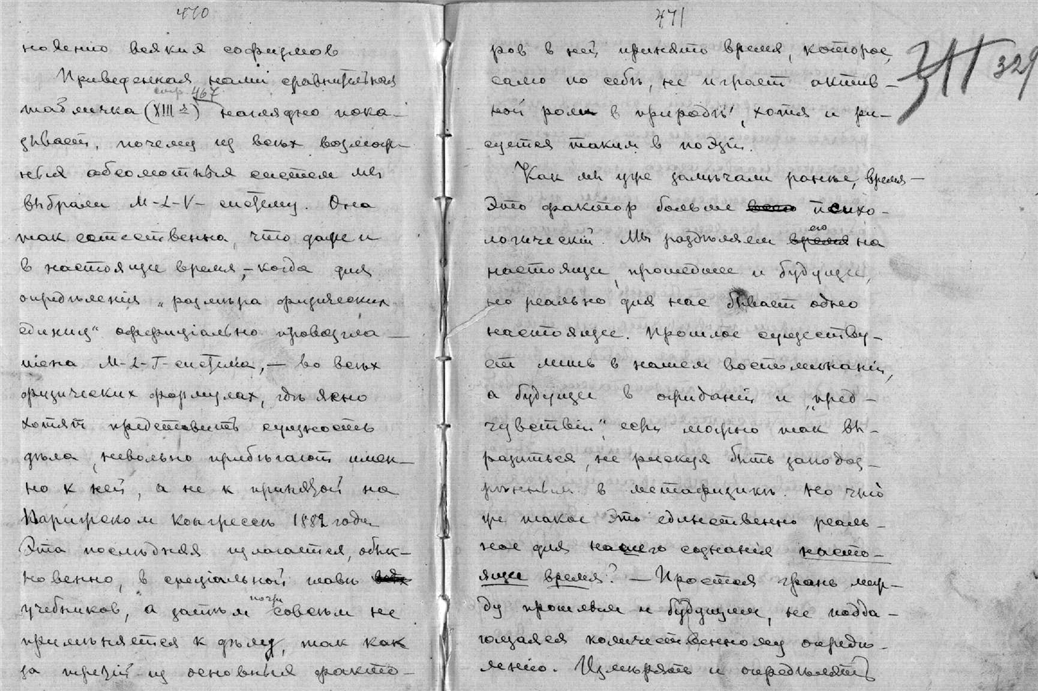 470
новенію всякія софизмов
Приведенная нами сравнительная
стр. 467
табличка (XIII 2) наглядно пока-
зывает, почему из всѣх возмож-
ных абсолютных систем мы
выбрали M-L-V-систему. Она
так естественна, что даже и
в настоящее время,- когда для
опредѣленія „размѣра физических
единиц“ оффиціально провозгла-
шена M-L-T-система, — во всѣх
физических формулах, гдѣ ясно
хотят представить сущность
дѣла, невольно прибѣгают имен-
но к ней, а не к принятой на
Парижском Конгрессѣ 188 года
Эта послѣдняя излагается, обык-
новенно, в спеціальной главѣ
учебников, а затѣм почти совсѣм не
примѣняется к дѣлу, так как
за третій из основных факто-
471
ров в ней принято время, которое,
само по себѣ, не играет актив-
ной роли в природѣ, хотя и ри-
суется таким в поэзіи.
329
Как мы уже замѣчали ранѣе, время —
Это фактор больше психо-
логическій. Мы раздѣляем его на
настоящее прошедшее и будущее,
но реально для нас бывает одно
настоящее. Прошлое существу-
ет лишь в нашем воспоминаніи,
а будущее в ожиданіи и „пред-
чувствіи“, если можно так вы-
разиться, не рискуя быть заподоз-
рѣнным в метафизикѣ. Но что
же такое это единственно реаль-
ное для нашего сознанія насто-
ящее время? — Простая грань меж-
ду прошлым и будущим, не подда-
ющаяся количественному опредѣ-
ленію. Измѣрять и опредѣлять